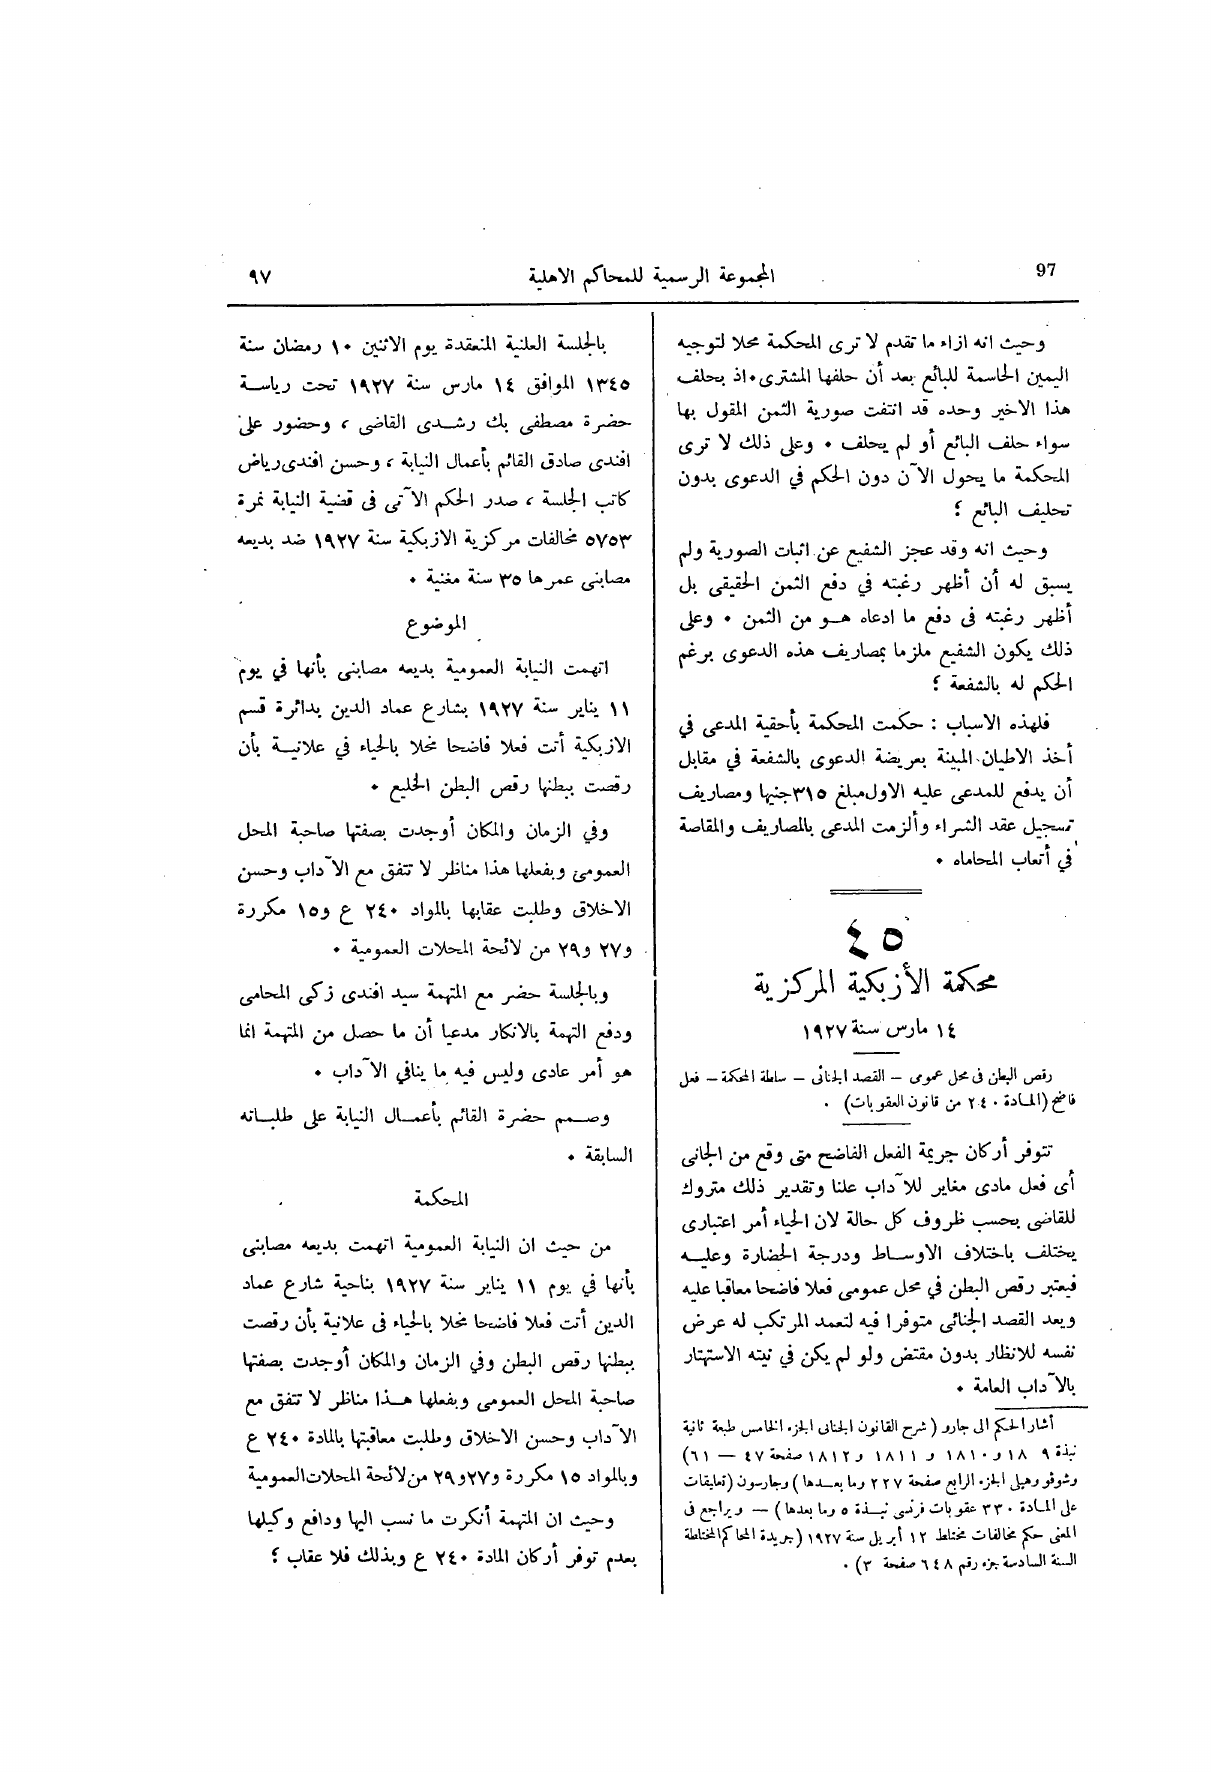 97
المجموعة الرسمية للمحاكم الاهلية
٩٧
وحيث انه ازاء ما تقدم لا ترى المحكمة محلا لتوجيه
اليمين الحاسمة للبائع بعد أن حلفها المشترى ٠ اذ بحلف
هذا الاخير وحده قد انتفت صورية الثمن المقول بها
سواء حلف البائع أو لم يحلف ٠ وعلى ذلك لا ترى
المحكمة ما يحول الآن دون الحكم في الدعوى بدون
تحليف البائع ؛
وحيث انه وقد عجز الشفيع عن اثبات الصورية ولم
يسبق له أن أظهر رغبته في دفع الثمن الحقيقى بل
أظهر رغبته فى دفع ما ادعاه هو من الثمن ٠ وعلى
ذلك يكون الشفيع ملزما بمصاريف هذه الدعوى برغم
الحكم له بالشفعة ؛
فلهذه الاسباب : حكمت المحكمة بأحقية المدعى في
أخذ الاطيان المبينة بعريضة الدعوى بالشفعة في مقابل
أن يدفع للمدعى عليه الاول مبلغ ٣١٥ جنيها ومصاريف
تسجيل عقد الشراء وألزمت المدعى بالمصاريف والمقاصة
في أتعاب المحاماه ٠
٤٥
محكمة الأزبكية المركزية
١٤ مارس سنة ١٩٢٧
رقص البطن فى محل عمومى – القصد الجنائى – سلطة المحكمة – فعل
فاضح (المادة ٢٤٠ من قانون العقوبات) .
تتوفر أركان جريمة الفعل الفاضح متى وقع من الجانى
أى فعل مادى مغاير للآداب علنا وتقدير ذلك متروك
للقاضى بحسب ظروف كل حالة لان الحياء أمر اعتبارى
يختلف باختلاف الاوساط ودرجة الحضارة وعليه
فيعتبر رقص البطن في محل عمومى فعلا فاضحا معاقبا عليه
ويعد القصد الجنائى متوفرا فيه لتعمد المرتكب له عرض
نفسه للانظار بدون مقتض ولو لم يكن في نيته الاستهتار
بالآداب العامة ٠
أشار الحكم الى جارو ( شرح القانون الجنائى الجزء الخامس طبعة ثانية
نبذة ١٨٠٩ و ١٨١٠ و ١٨١١ و ١٨١٢ صفحة ٤٧ — ٦١)
وشوفو وهيلى الجزء الرابع صفحة ٢٢٧ وما بعدها ) وجارسون (تعليقات
على المادة ٣٣٠ عقوبات فرنسى نبذة ٥ وما بعدها ) — ويراجع فى
المعنى حكم مخالفات مختلط ١٢ أبريل سنة ١٩٢٧ (جريدة المحاكم المختلطة
السنة السادسة جزء رقم ٦٤٨ صفحة ٣) .
بالجلسة العلنية المنعقدة يوم الاثنين ١٠ رمضان سنة
١٣٤٥ الموافق ١٤ مارس سنة ١٩٢٧ تحت رياسة
حضرة مصطفى بك رشدى القاضى ، وحضور على
افندى صادق القائم بأعمال النيابة ، وحسن افندى رياض
كاتب الجلسة ، صدر الحكم الآتى فى قضية النيابة نمرة
٥٧٥٣ مخالفات مركزية الازبكية سنة ١٩٢٧ ضد بديعه
مصابنى عمرها ٣٥ سنة مغنية ٠
الموضوع
اتهمت النيابة العمومية بديعه مصابنى بأنها في يوم
١١ يناير سنة ١٩٢٧ بشارع عماد الدين بدائرة قسم
الازبكية أتت فعلا فاضحا مخلا بالحياء في علانية بأن
رقصت ببطنها رقص البطن الخليع ٠
وفي الزمان والمكان أوجدت بصفتها صاحبة المحل
العمومى وبفعلها هذا مناظر لا تتفق مع الآداب وحسن
الاخلاق وطلبت عقابها بالمواد ٢٤٠ ع و١٥ مكررة
و٢٧ و٢٩ من لائحة المحلات العمومية ٠
وبالجلسة حضر مع المتهمة سيد افندى زكى المحامى
ودفع التهمة بالانكار مدعيا أن ما حصل من المتهمة انما
هو أمر عادى وليس فيه ما ينافي الآداب ٠
وصمم حضرة القائم بأعمال النيابة على طلباته
السابقة ٠
المحكمة
من حيث ان النيابة العمومية اتهمت بديعه مصابنى
بأنها في يوم ١١ يناير سنة ١٩٢٧ بناحية شارع عماد
الدين أتت فعلا فاضحا مخلا بالحياء فى علانية بأن رقصت
ببطنها رقص البطن وفي الزمان والمكان أوجدت بصفتها
صاحبة المحل العمومى وبفعلها هذا مناظر لا تتفق مع
الآداب وحسن الاخلاق وطلبت معاقبتها بالمادة ٢٤٠ ع
وبالمواد ١٥ مكررة و٢٧و٢٩ من لائحة المحلات العمومية
وحيث ان المتهمة أنكرت ما نسب اليها ودافع وكيلها
بعدم توفر أركان المادة ٢٤٠ ع وبذلك فلا عقاب ؛